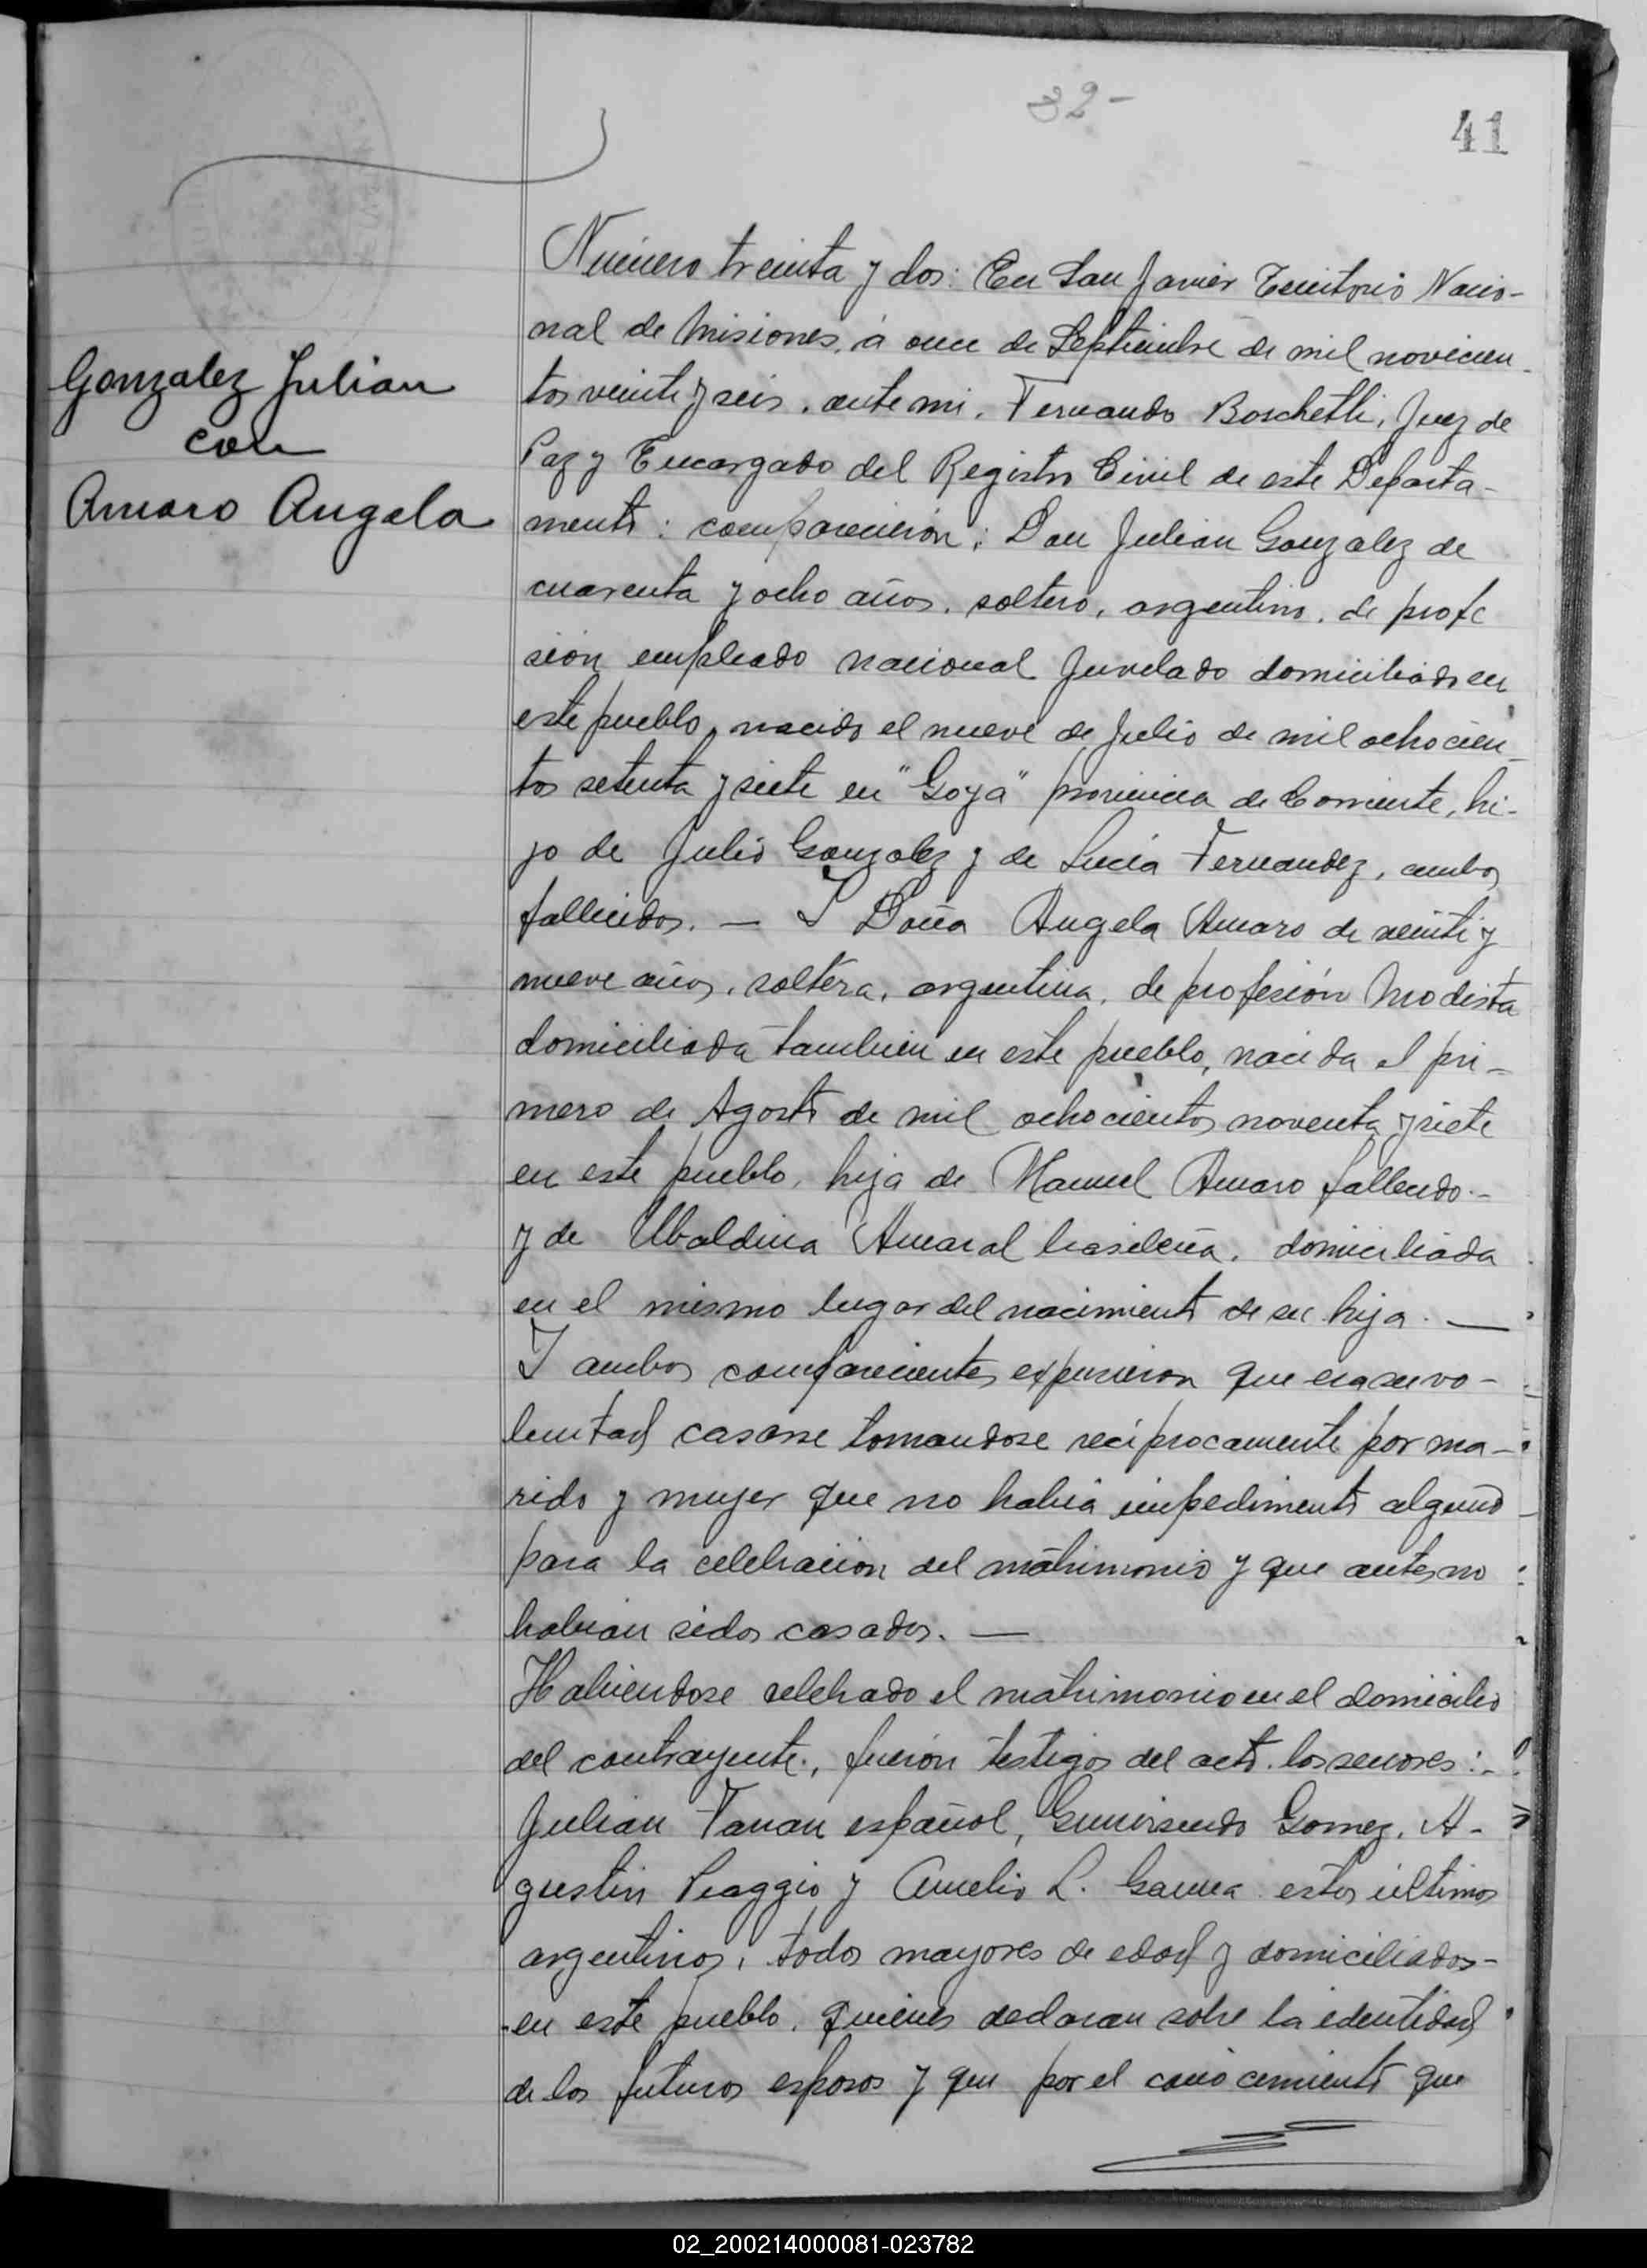 32-
41
Gonzalez Julian
con
Amaro Angela
Número treinta y dos: En San Javier Territorio Nacio-
nal de Misiones, á once de Septiembre de mil novecien-
tos veinte y seis, ante mi, Fernando Boschetti, Juez de
Paz y Encargado del Registro Civil de este Departa-
mento: comparecieron: Don Julian Gonzalez de
cuarenta y ocho años, soltero, argentino, de profe
sión empleado nacional Juvelado domiciliado en
este pueblo, nacido el nueve de Julio de mil ochocien
tos setenta y siete en "Goya" provincia de Corriente, hi-
jo de Julio Gonzalez y de Lucia Fernandez, ambos
fallecidos. — Y Doña Angela Amaro de veinte y
nueve años, soltera, argentina, de profesión Modista
domiciliada tambien en este pueblo, nacida el pri-
mero de Agosto de mil ochocientos noventa y siete
en este pueblo, hija de Manuel Amaro fallecido.-
y de Ubaldina Amaral brasileña, domiciliada
en el mismo lugar del nacimiento de su hija. —
Y ambos comparecientes expusieron que era su vo-
luntad casarse tomandose reciprocamente por ma-
rido y mujer que no habia impedimento alguno
para la celebracion del matrimonio y que antes no
habian sidos casados. —
Habiendose celebrado el matrimonio en el domicilio
del contrayente., fueron testigos del acto. los senores:-
Julian Fanan español, Gumersindo Gomez, A-
gustin Piaggio y Amelio L. estos últimos
argentinos, todos mayores de edad y domiciliados-
-en este pueblo, quienes declaran sobre la identidad
de los futuros esposos y que por el conocimiento que
02_200214000081-023782